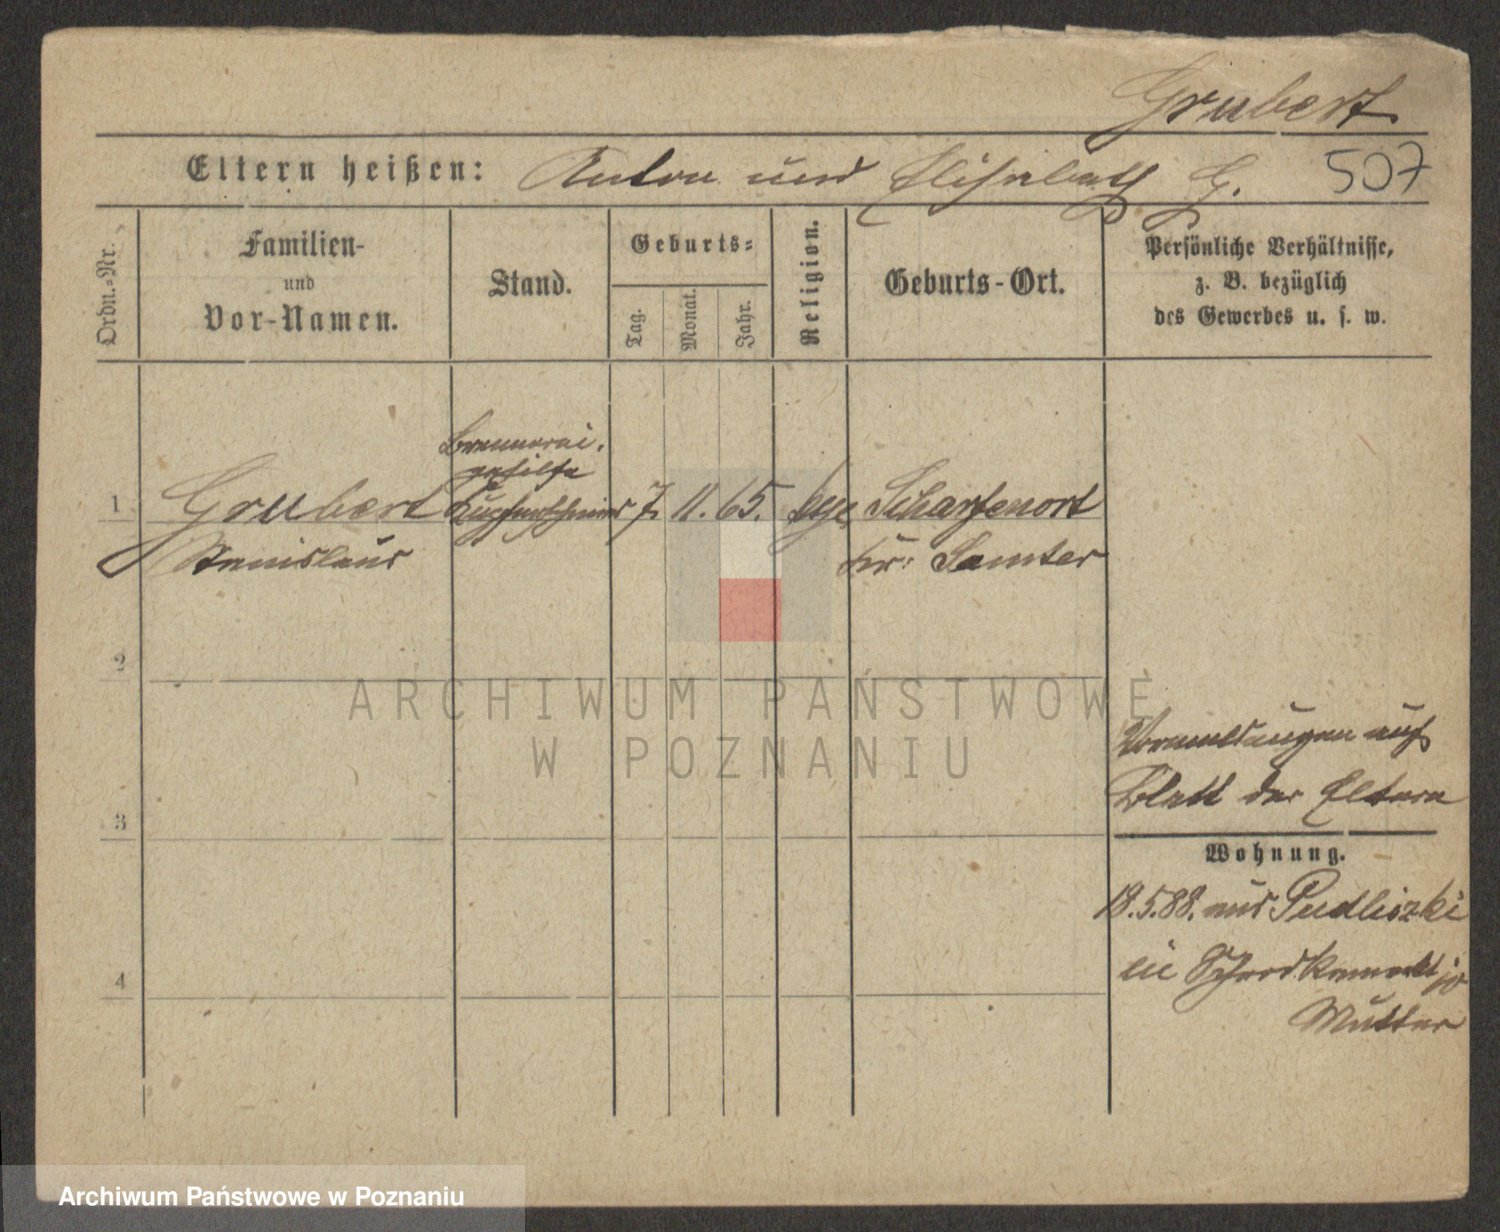 Grubert
Eltern heißen: Anton und Elisabeth G. 507
Ordn.-Nr.
Familien-
und
Vor-Namen.
Stand.
Geburts-
Tag.
Monat.
Jahr.
Religion.
Geburts-Ort.
Persönliche Verhältnisse,
z. B. bezüglich
des Gewerbes u. s. w.
Brennerei-
gehilfe
1 Grubert Kupferschmied 7. 11. 65. Scharfenort
Stanislaus Kr: Samter
2
ARCHIWUM PAŃSTWOWE
W POZNANIU
auf
Blatt der Eltern
3
Wohnung.
18.5.88. aus Pudliszki
4
Mutter
Archiwum Państwowe w Poznaniu